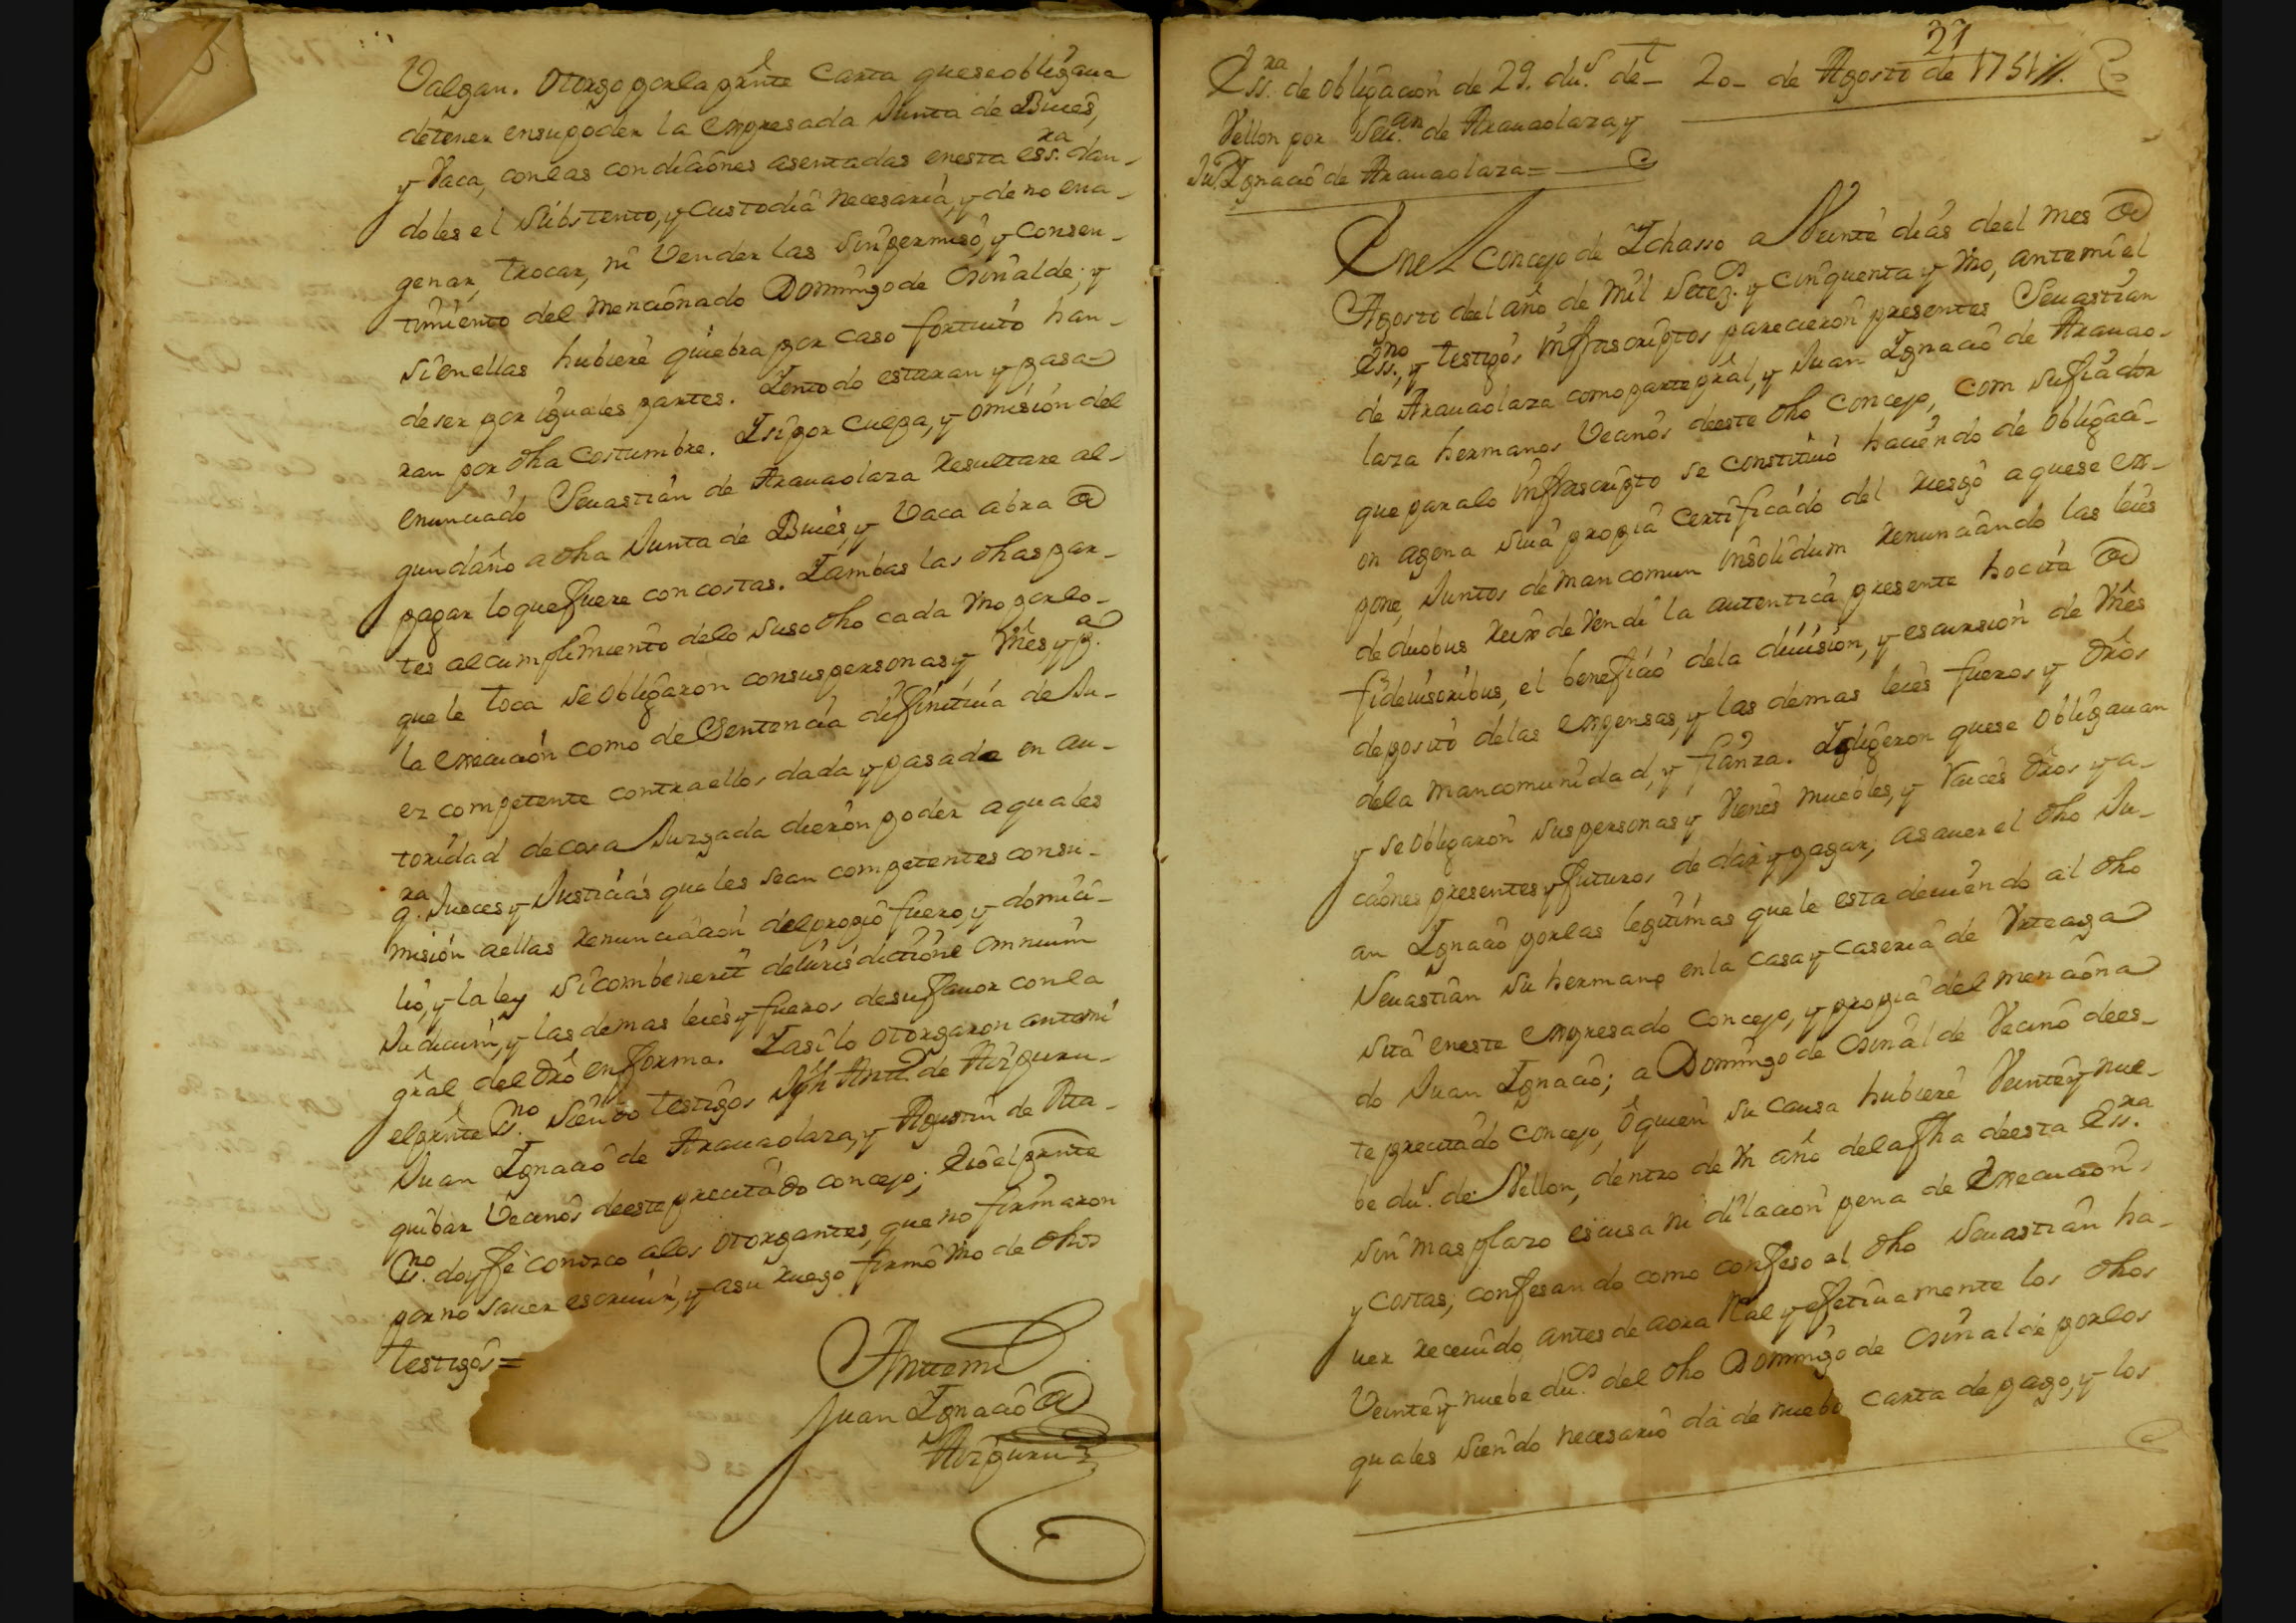 Valgan. Otorgo por la prĩte Carta que se obligaua
de tener en su poder la expresada Junta de Buies,
y Vaca, con las condiciones asentadas en esta ess.ra dan-
doles el substento, y Custodia necesaria, y de no ena-
genar, trocar, ni Vender las sin permiso, y consen-
timiento del mencionado Domingo de Osinalde; y
si en ellas hubiere quiebra por caso fortuito han-
de ser por iguales partes. Y en todo estaran y pasa-
ran por dha costumbre. Y si por culpa, y omision del
enunciado Seuastian de Arauaolaza resultare al-
gun daño a dha Junta de Buies, y Vaca abra de
pagar lo que fuere con costas. Y ambas las dhas par-
tes al cumplimiento de lo suso dho cada Vno por lo-
que le toca se obligaron con sus personas y Vñes y p.a
la execucion como de Sentencia difinitiua de Ju-
ez competente contra ellos dada y pasada en au-
toridad de cosa Juzgada dieron poder a quales
q.ra Jueces y Justicias que les sean competentes consu-
mision a ellas renunciacion del propio fuero, y domici-
lio, y la ley si combenerit de iurisdictione omnium
Judicum, y las demas leies y fueros de su fauor con la
gñal del dro en forma. Y asi lo otorgaron ante mi
el prñte ess.no siendo testigos Jph Ant.o de Aizpuru-
Juan Ignacio de Arauaolaza, y Agustin de
quibar Vecinos de este precitado concejo; Y io el prñte
ess.no doy fe conozco a los otorgantes, que no firmaron
por no sauer escriuir, y a su ruego firmó Vno de dhos
testigos=
Ante mi
Juan Ignacio de
Aizpuru
27
Ess.ra de obligacion de 29. du.s de-
Vellon por Seu.an de Arauaolaza, y
Ju. Ignacio de Arauaolaza=
20- de Agosto de 1751//.
En el Concejo de Ichasso a Veinte dias de el mes de
Agosto de el año de mil Setez.s y cinquenta y Vno, ante mi el
Ess.no, y testigos infrascriptos parecieron presentes Seuastian
de Arauaolaza como parte pñal, y Juan Ignacio de Arauao-
laza hermanos Vecinos de este dho Concejo, com su fiador
que para lo infrascripto se constituió haciendo de obligaci-
on agena suia propia certificado del riesgo a que se ex-
pone, Juntos de mancomun insolidum renunciando las leies
de duobus reis de Vendi la autentica presente hocita de
fideiusoribus, el beneficio de la diuision, y escursion de Vñes
deposito de las expensas, y las demas leies fueros y dros
de la mancomunidad, y fianza. Y digeron que se obligauan
y se obligaron sus personas y Vienes muebles, y raices dros y a-
ciones presentes y futuros de dar y pagar; a sauer el dho Ju-
an Ignacio por las legitimas que le esta deuiendo al dho
Seuastian su hermano en la casa y caseria de Vrteaga
sita en este expresado Concejo, y propia del menciona
do Juan Ignacio; a Domingo de Osinalde Vecino de es-
te precitado concejo, ò quien su causa hubiere Veinte y nue-
be du.s de Vellon, dentro de Vn año de la fha de esta Ess.ra
sin mas plazo escusa ni dilacion pena de Execucion,
y costas, confesando como confeso el dho Seuastian ha-
uer receuido antes de aora Real y efetiuamente los dhos
Veinte y nuebe du.s del dho Domingo de Osinalde por los
quales siendo necesario dá de nuebo carta de pago, y los